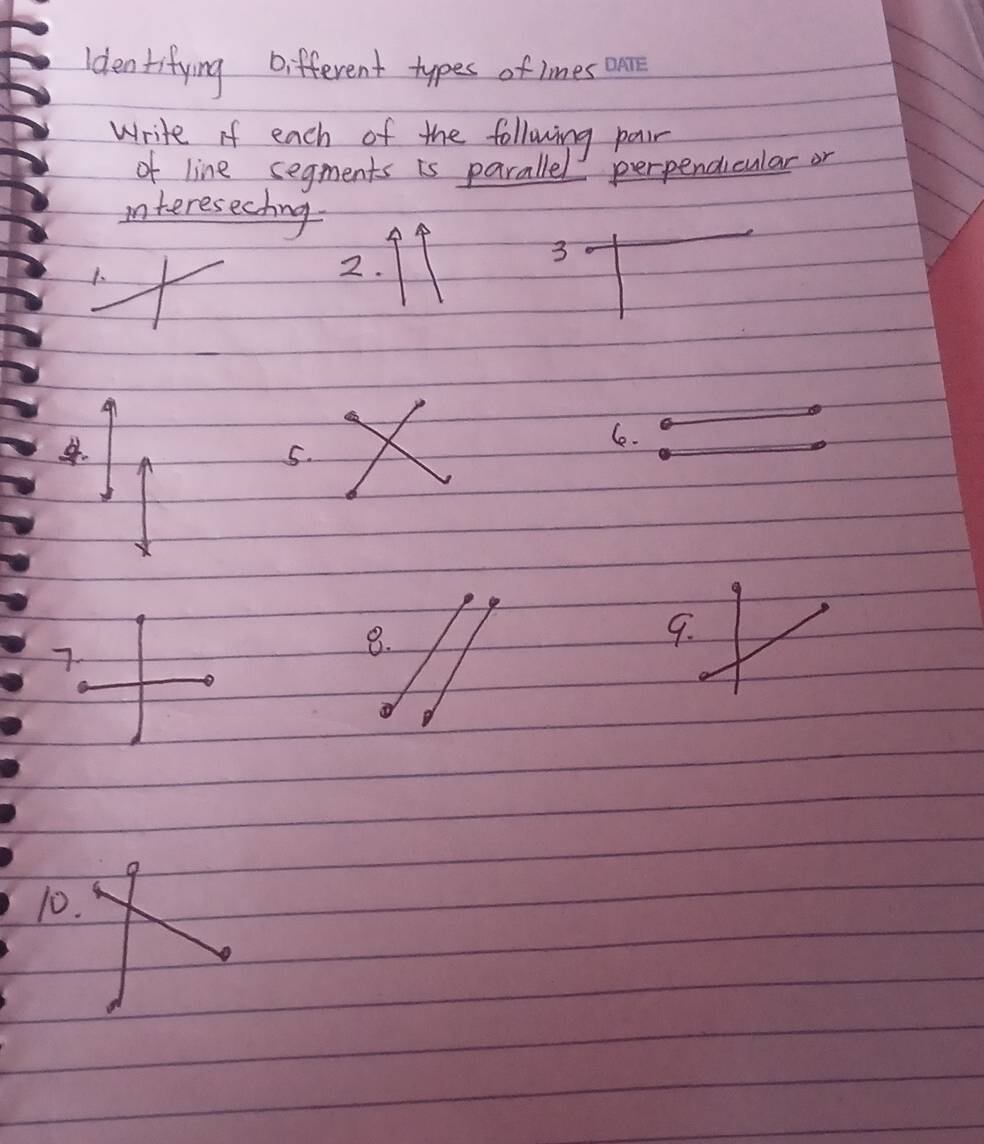 Identifying Different types of lines DATE
Write if each of the follwing pair
of line segments is parallel perpendicular or
interesecting.
1. 2. 3
4. 5. 6.
7. 8. 9.
10.